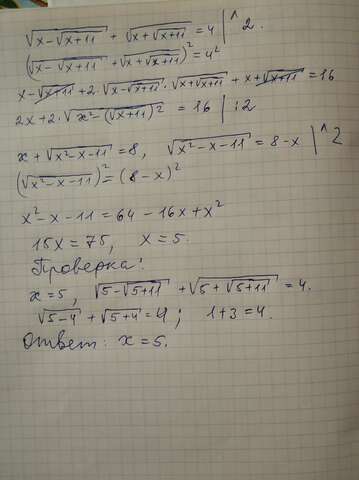 √(x-√(x+11)) + √(x+√(x+11)) = 4 |^2.
(√(x-√(x+11)) + √(x+√(x+11)))² = 4²
x-√(x+11)+2·√(x-√(x+11))·√(x+√(x+11)) + x+√(x+11) = 16
2x+2·√(x²-(√(x+11))²) = 16 | :2
x+√(x²-x-11) = 8, √(x²-x-11) = 8-x |^2
(√(x²-x-11))² = (8-x)²
x²-x-11 = 64-16x+x²
15x = 75, x = 5.
Проверка:
x=5, √(5-√(5+11)) + √(5+√(5+11)) = 4.
√(5-4) + √(5+4) = 4; 1+3=4.
Ответ: x=5.